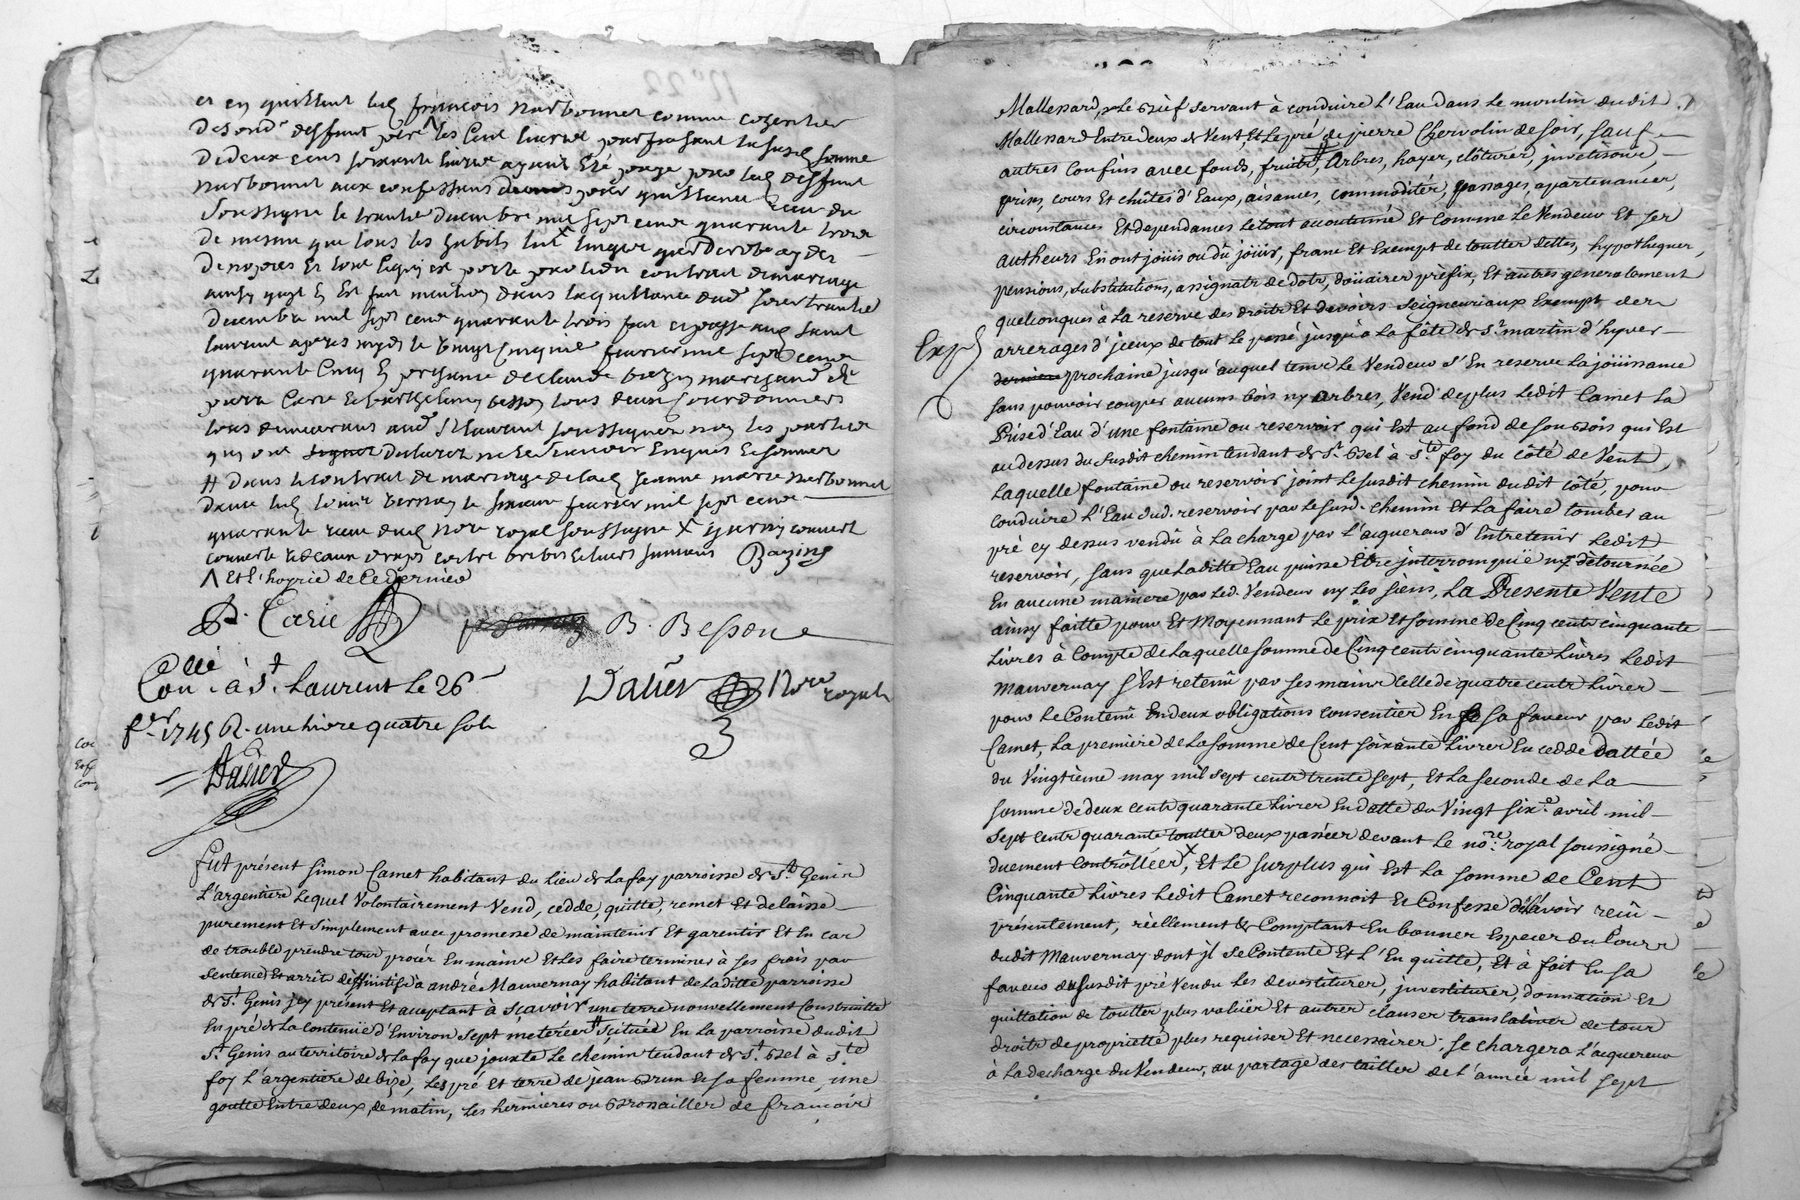 et en quittent led françois narbonnet comme coheritier
de sond deffunt père les Cent livres pour faisant la susd somme
de deux cens soixante livres ayant été payé pour led deffunt
narbonnet aux confessions pour quittance receu du
Soussigné le trante decembre mil sept cens quarante trois
de mesme que tous les habits linges
de noyers et tout porté pour led contrat de mariage
ainsy quil est fait mention dans la quittance dud jour trante
decembre mil sept cens quarante trois fait et passé aud saint
laurent apres midy le vingt cinquie fevrier mil sept cens
quarante cinq en presance de Claude marchand et
pierre Carie et barthelemy besson tous deux Cordonniers
tous demeurans aud St laurent soussignez non les parties
qui ont declaré ne le sçavoir enquis et sommez
# dans le contrat de mariage de lad Jeanne marie narbonnet
dans led fevrier mil sept cens
quarante receu dud nore royal soussigné X garny couvert
couverte rideaux draps brebis et leurs Bazing
Λ et l'hoyrie de ce dernier
P. Carie B. Besson
Collé Con. à St. Laurent le 26e
fer. 1745 R. une livre quatre sols
Dalier Nore royal
Dalier
Fut présent Simon Camet habitant du lieu de Lafay parroisse de St. Genis
L'argentiere Lequel Volontairement Vend, cedde, quitte, remet Et delaisse
purement Et Simplement avec promesse de maintenir Et garentir Et En cas
de trouble prendre tous procès En main Et Les faire terminer à ses frais par
sentence Et arrêt deffinitif à andré Mauvernay habitant de Laditte parroisse
de St. Genis jcy présent Et acceptant à Sçavoir une terre nouvellement Construitte
En pré de La contenüe d'Environ Sept meterées # Scituée En La parroisse dudit
St. Genis au territoire de Lafay que jouxte Le chemin tendant de St. Bel à Ste
foy L'argentiere de bize, Les pré Et terre de jean Brun Et Sa femme, une
goutte Entre deux de matin, Les hermieres ou Brossailles de françois
Mallenard, Le Bief servant à conduire L'Eau dans Le moulin dudit
Mallenard Entre deux de Vent, Et Le pré de pierre Chervolin de soir, sauf
autres Confins avec fonds, fruits, # Arbres, hayes, clôtures, jnvetisone,
prises, cours Et chûtes d'Eaux, aisances, commodités, passages, apartenances,
circonstances Et dependances Le tout accoutumé Et Comme Le Vendeur Et ses
autheurs En ont joüis ou dû joüir, franc Et Exempt de touttes dettes, hypotheques,
pensions, substitutions, assignats de dots, doüaires prèfix, Et autres generalement
quelconques à La reserve des droits Et devoirs Seigneuriaux Exempt des
arrerages d'jceux de tout Le passé jusqu'à La fête de St. martin d'hyver
Exp
derniere prochaine jusqu'auquel tems Le Vendeur s'En reserve La joüissance
sans pouvoir couper aucuns bois ny arbres, Vend de plus Ledit Camet La
Prise d'Eau d'une fontaine ou reservoir qui Est au fond de son Bois qui Est
au dessus du susdit chemin tendant de St. Bel à Ste. foy du côté de Vent,
Laquelle fontaine ou reservoir joint Le susdit chemin dudit côté, pour
conduire L'Eau dud. reservoir par Le susd. chemin Et La faire tomber au
pré cy dessus vendu à La charge par L'acquereur d'Entretenir Ledit
reservoir, sans que Laditte Eau puisse Être jnterrompuë ny dètournée
En aucune maniere par Led. Vendeur ny Les siens, La Presente Vente
ainsy faitte pour Et Moyennant Le prix Et somme de Cinq cents cinquante
Livres à Compte de Laquelle somme de Cinq cents cinquante Livres Ledit
Mauvernay s'Est retenu par ses mains Celle de quatre cents Livres
pour Le Contenu En deux obligations consenties En sa faveur par Ledit
Camet, La premiere de La somme de Cent soixante Livres En cedde Dattée
du Vingtieme may mil sept cents trente sept, Et La seconde de La
somme de deux cents quarante Livres En datte du Vingt sixe. avril mil
sept cents quarante touttes deux passées devant Le nore. royal soussigné
duement Contrôllées X, Et Le surplus qui Est La somme de Cent
Cinquante Livres Ledit Camet reconnoit Et Confesse d'L'avoir reçû
présentement, rèellement & Comptant En bonnes Especes du Cours
dudit Mauvernay dont jl se Contente Et L'En quitte, Et à fait En sa
faveur du susdit pré Vendu Les devestitures, jnvestitures, donnation Et
quittation de touttes plus valües Et autres clauses translatives de tous
droits de proprieté plus requises Et necessaires, se chargera L'acquereur
à La decharge du Vendeur, au partage des tailles de L'année mil sept